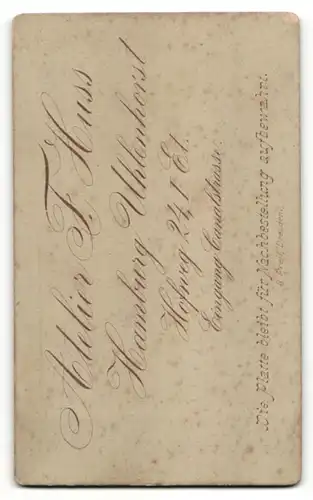 Atelier F. Huss
Hamburg Uhlenhorst
Hofweg 24, 1 Et.
Eingang Canalstrasse.
Die Platte bleibt für Nachbestellung aufbewahrt.